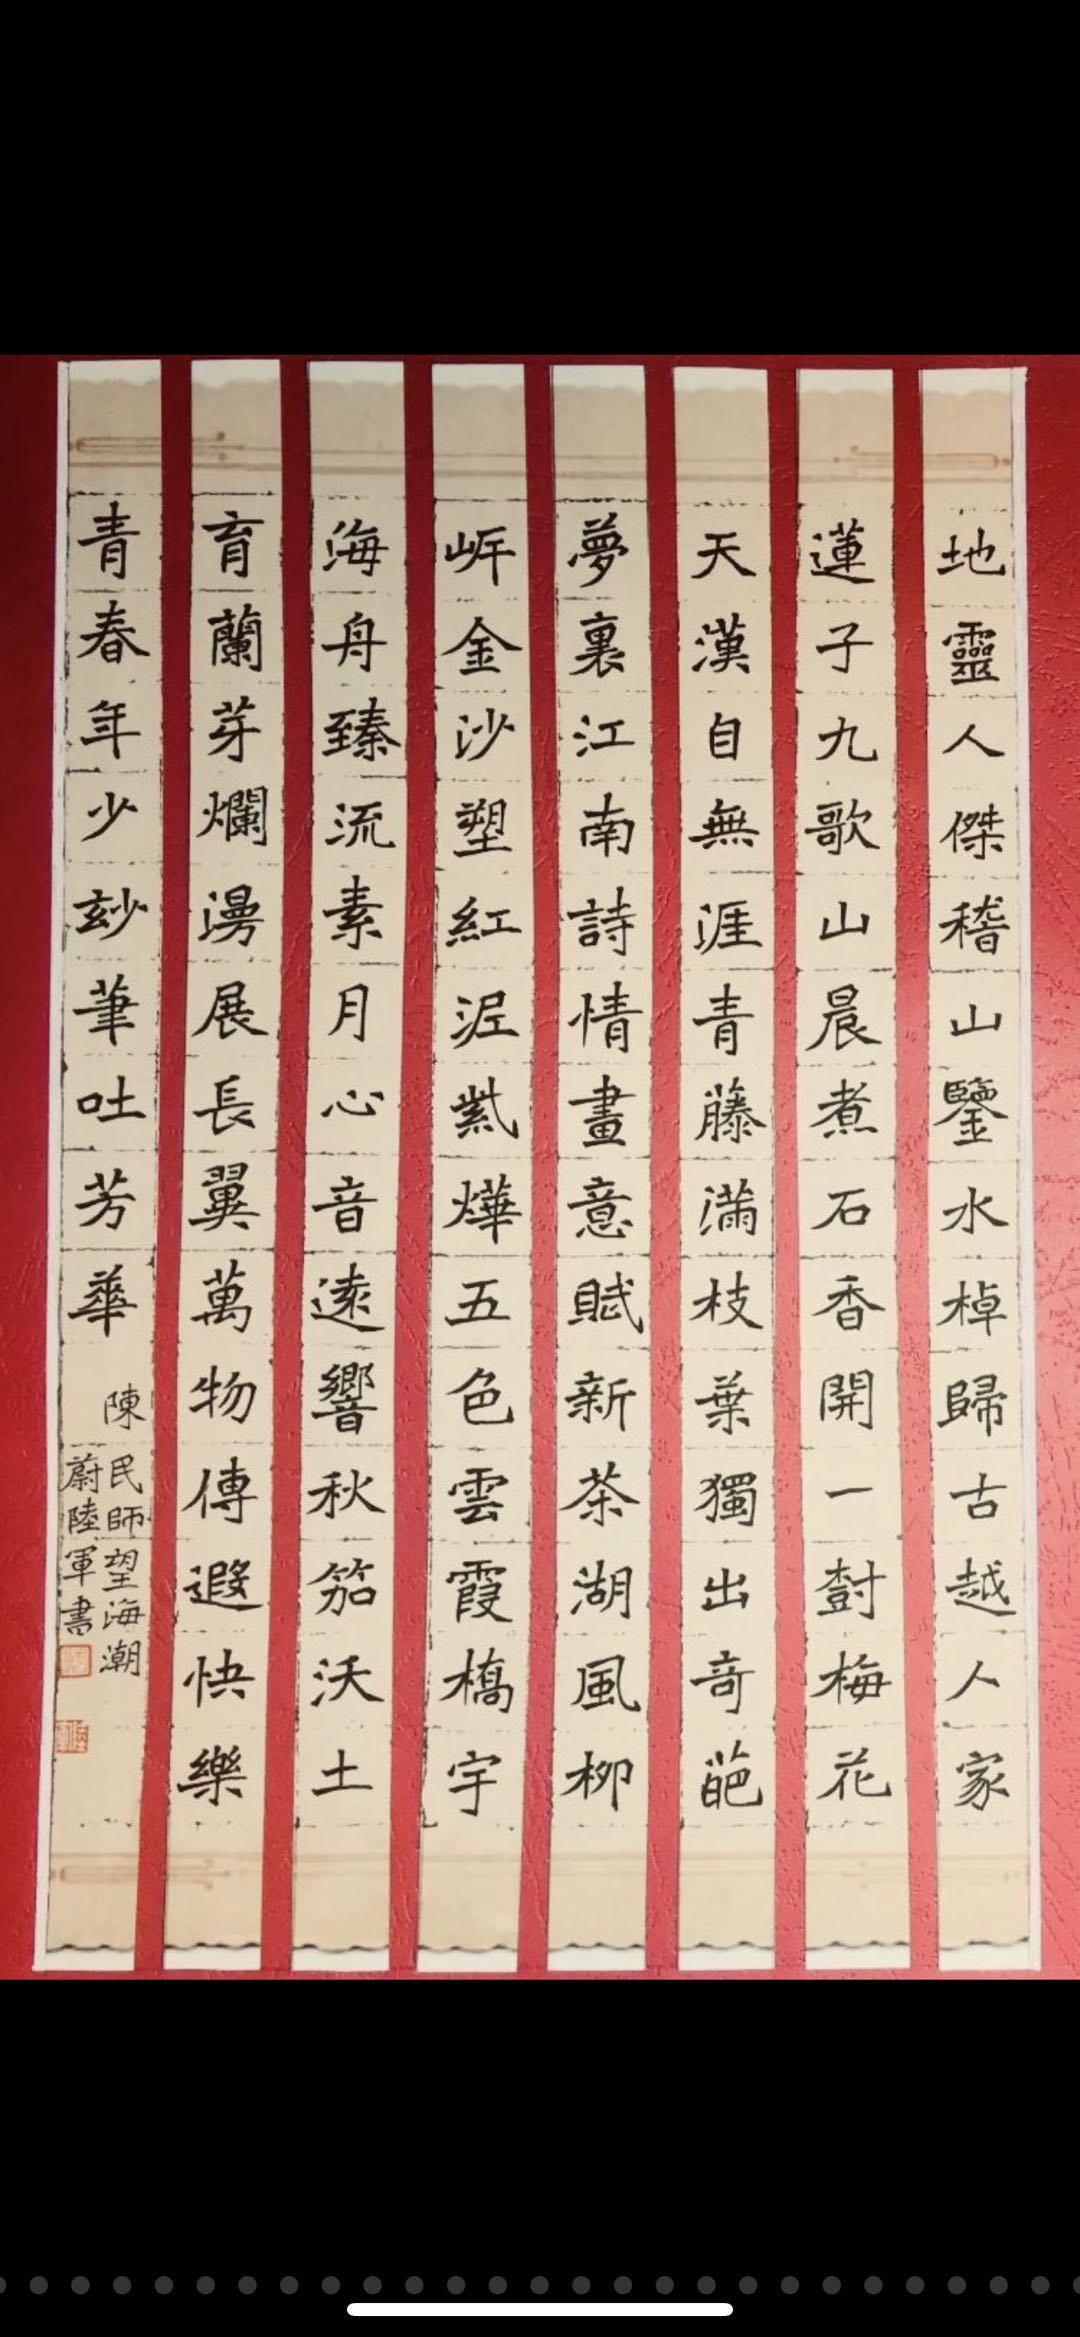 地靈人傑稽山鑒水棹歸古越人家
蓮子九歌山晨煮石香開一樹梅花
天漢自無涯青藤滿枝葉獨出奇葩
夢裏江南詩情畫意賦新茶湖風柳
岸金沙塑紅泥紫燁五色雲霞橋宇
海舟臻流素月心音遠響秋笳沃土
育蘭芽爛漫展長翼萬物傳遐快樂
青春年少妙筆吐芳華
陳民師望海潮
蔚陸軍書